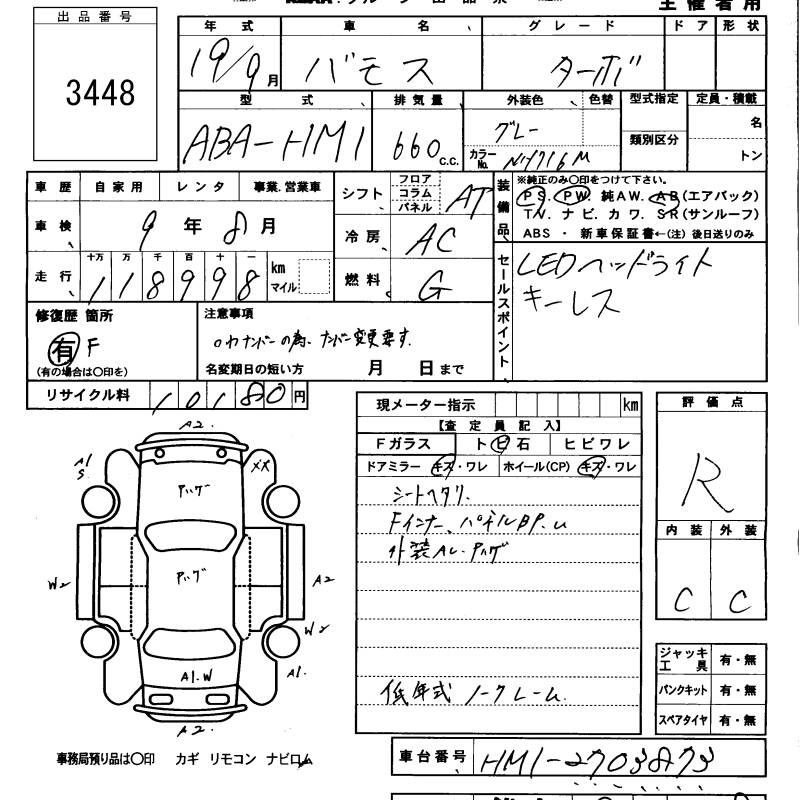 主催者用
出品番号
3448
年式 車名 グレード ドア 形状
19/9月 バモス ターボ
型式 排気量 外装色 色替 型式指定 定員・積載
ABA-HM1 660 c.c. グレー 類別区分 名
カラーNo. NH716M トン
車歴 自家用 レンタ 事業.営業車
車検 9年8月
走行 十万 万 千 百 十 一
118998 km マイル
シフト フロア コラム パネル AT
冷房 AC
燃料 G
装備品 ※純正のみ○印をつけて下さい。
PS. PW. 純AW. AB(エアバック)
TV. ナビ. カワ. SR(サンルーフ)
ABS ・ 新車保証書←(注) 後日送りのみ
セールスポイント
LEDヘッドライト
キーレス
修復歴 箇所
有 F
(有の場合は○印を)
注意事項
○ワナンバーの為、ナンバー変更要す.
名変期日の短い方 月 日まで
リサイクル料 10180円
現メーター指示 km
【査定員記入】
Fガラス ト ビ 石 ヒビワレ
ドアミラー キズ・ワレ ホイール(CP) キズ・ワレ
シートヘタリ.
Fインナー、パネルBP.ム
外装AL.ハゲ
低年式 ノークレーム.
評価点
R
内装 外装
C C
ジャッキ工具 有・無
パンクキット 有・無
スペアタイヤ 有・無
A2.
A1
S
XX
ハゲ
ハゲ
W2
A2
W2
A1.W
A1.
A2.
事務局預り品は○印 カギ リモコン ナビロム
車台番号 HM1-2703873